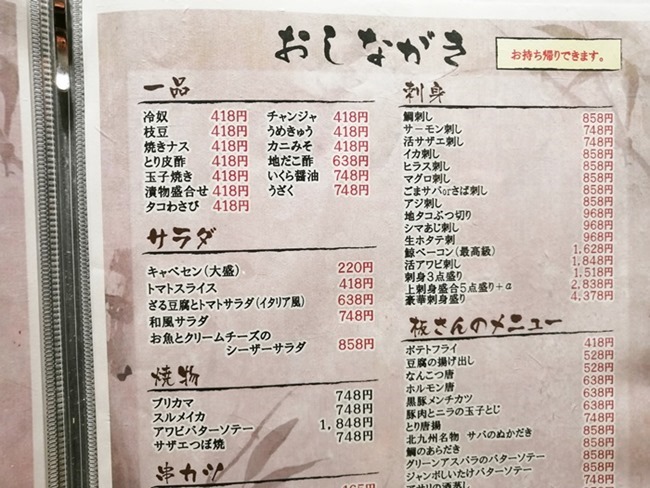 おしながき
お持ち帰りできます。
一品
冷奴 418円
枝豆 418円
焼きナス 418円
とり皮酢 418円
玉子焼き 418円
漬物盛合せ 418円
タコわさび 418円
チャンジャ 418円
うめきゅう 418円
カニみそ 418円
地だこ酢 638円
いくら醤油 748円
うざく 748円
サラダ
キャベセン(大盛) 220円
トマトスライス 418円
ざる豆腐とトマトサラダ(イタリア風) 638円
和風サラダ 748円
お魚とクリームチーズの
シーザーサラダ 858円
焼物
ブリカマ 748円
スルメイカ 748円
アワビバターソテー 1,848円
サザエつぼ焼 748円
串カツ
刺身
鯛刺し 858円
サーモン刺し 748円
活サザエ刺し 748円
イカ刺し 858円
ヒラス刺し 858円
マグロ刺し 858円
ごまサバorさば刺し 858円
アジ刺し 858円
地タコぶつ切り 968円
シマあじ刺し 968円
生ホタテ刺し 968円
鯨ベーコン(最高級) 1,628円
活アワビ刺し 1,848円
刺身3点盛り 1,518円
上刺身盛合5点盛り+α 2,838円
豪華刺身盛り 4,378円
板さんのメニュー
ポテトフライ 418円
豆腐の揚げ出し 528円
なんこつ唐 528円
ホルモン唐 638円
黒豚メンチカツ 638円
豚肉とニラの玉子とじ 638円
とり唐揚 638円
北九州名物 サバのぬかだき 858円
鯛のあらだき 858円
グリーンアスパラのバターソテー 858円
ジャンボしいたけバターソテー 858円